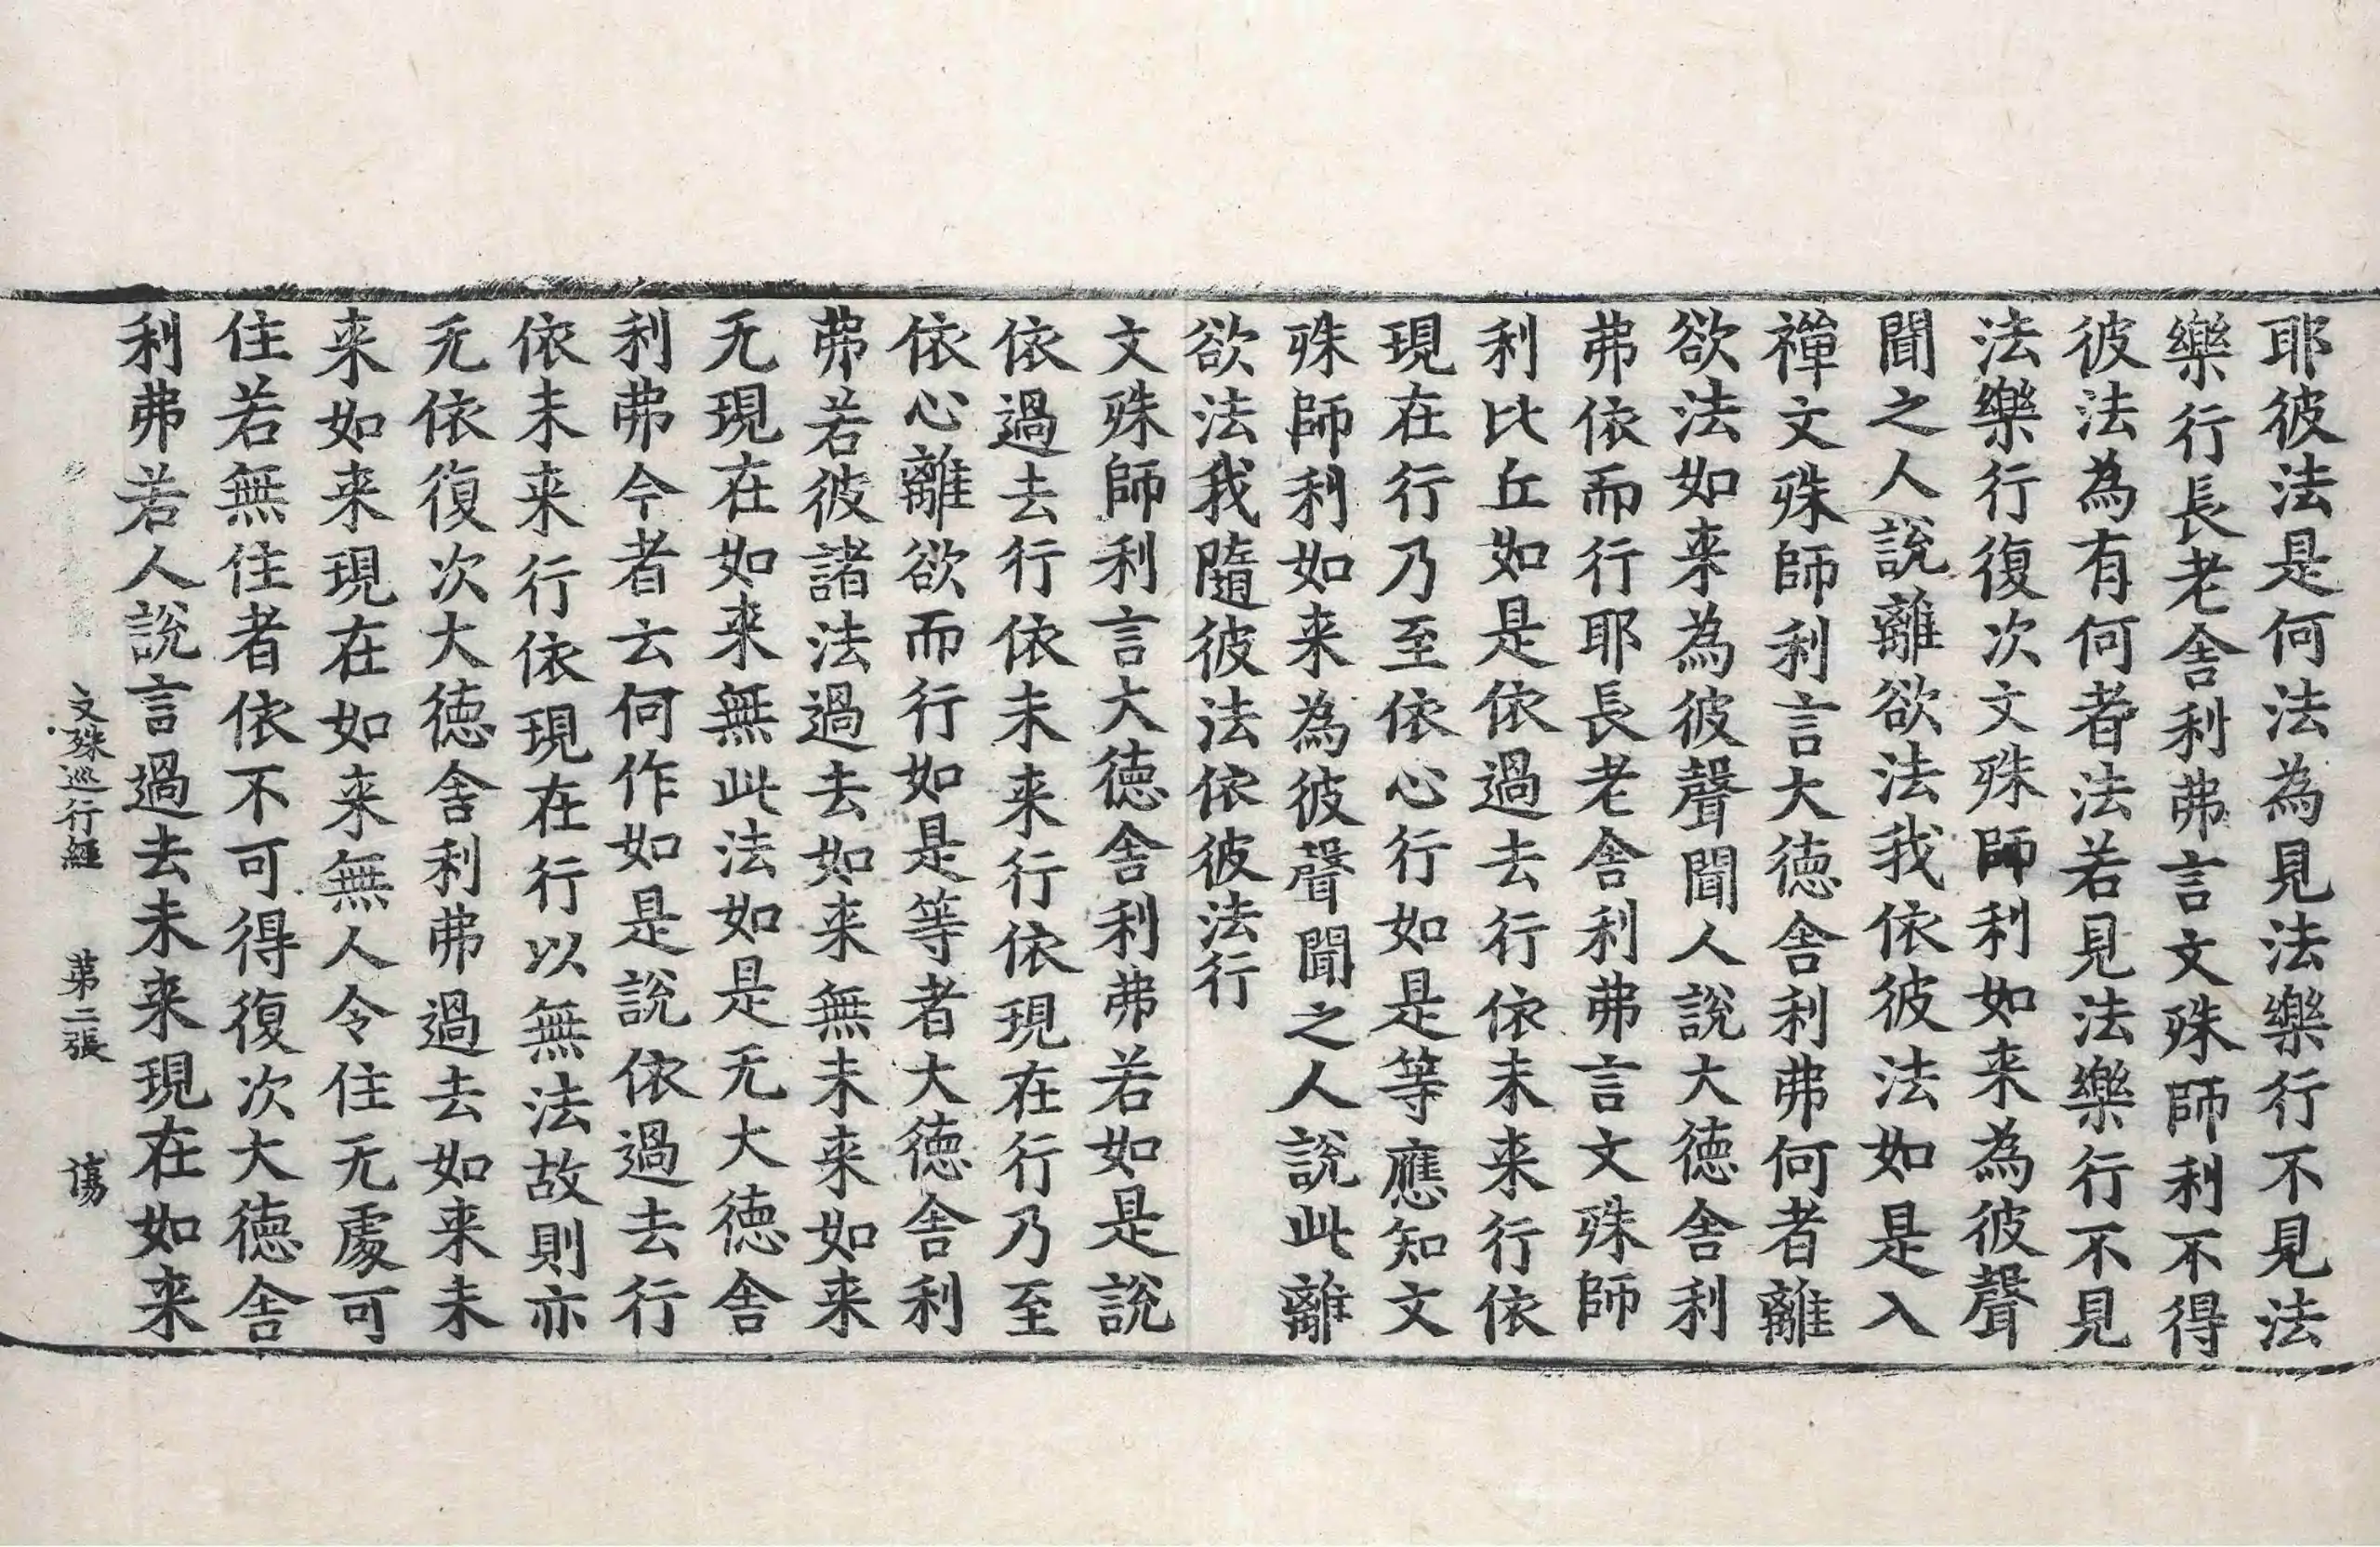 耶彼法是何法為見法樂行不見法
樂行長老舍利弗言文殊師利不得
彼法為有何者法若見法樂行不見
法樂行復次文殊師利如来為彼聲
聞之人說離欲法我依彼法如是入
禪文殊師利言大德舍利弗何者離
欲法如来為彼聲聞人說大德舍利
弗依而行耶長老舍利弗言文殊師
利比丘如是依過去行依未来行依
現在行乃至依心行如是等應知文
殊師利如来為彼聲聞之人說此離
欲法我隨彼法依彼法行
文殊師利言大德舍利弗若如是說
依過去行依未来行依現在行乃至
依心離欲而行如是等者大德舍利
弗若彼諸法過去如来無未来如来
无現在如来無此法如是无大德舍
利弗今者云何作如是說依過去行
依未来行依現在行以無法故則亦
无依復次大德舍利弗過去如来未
来如来現在如来無人令住无處可
住若無住者依不可得復次大德舍
利弗若人說言過去未来現在如来
文殊巡行經 第二張